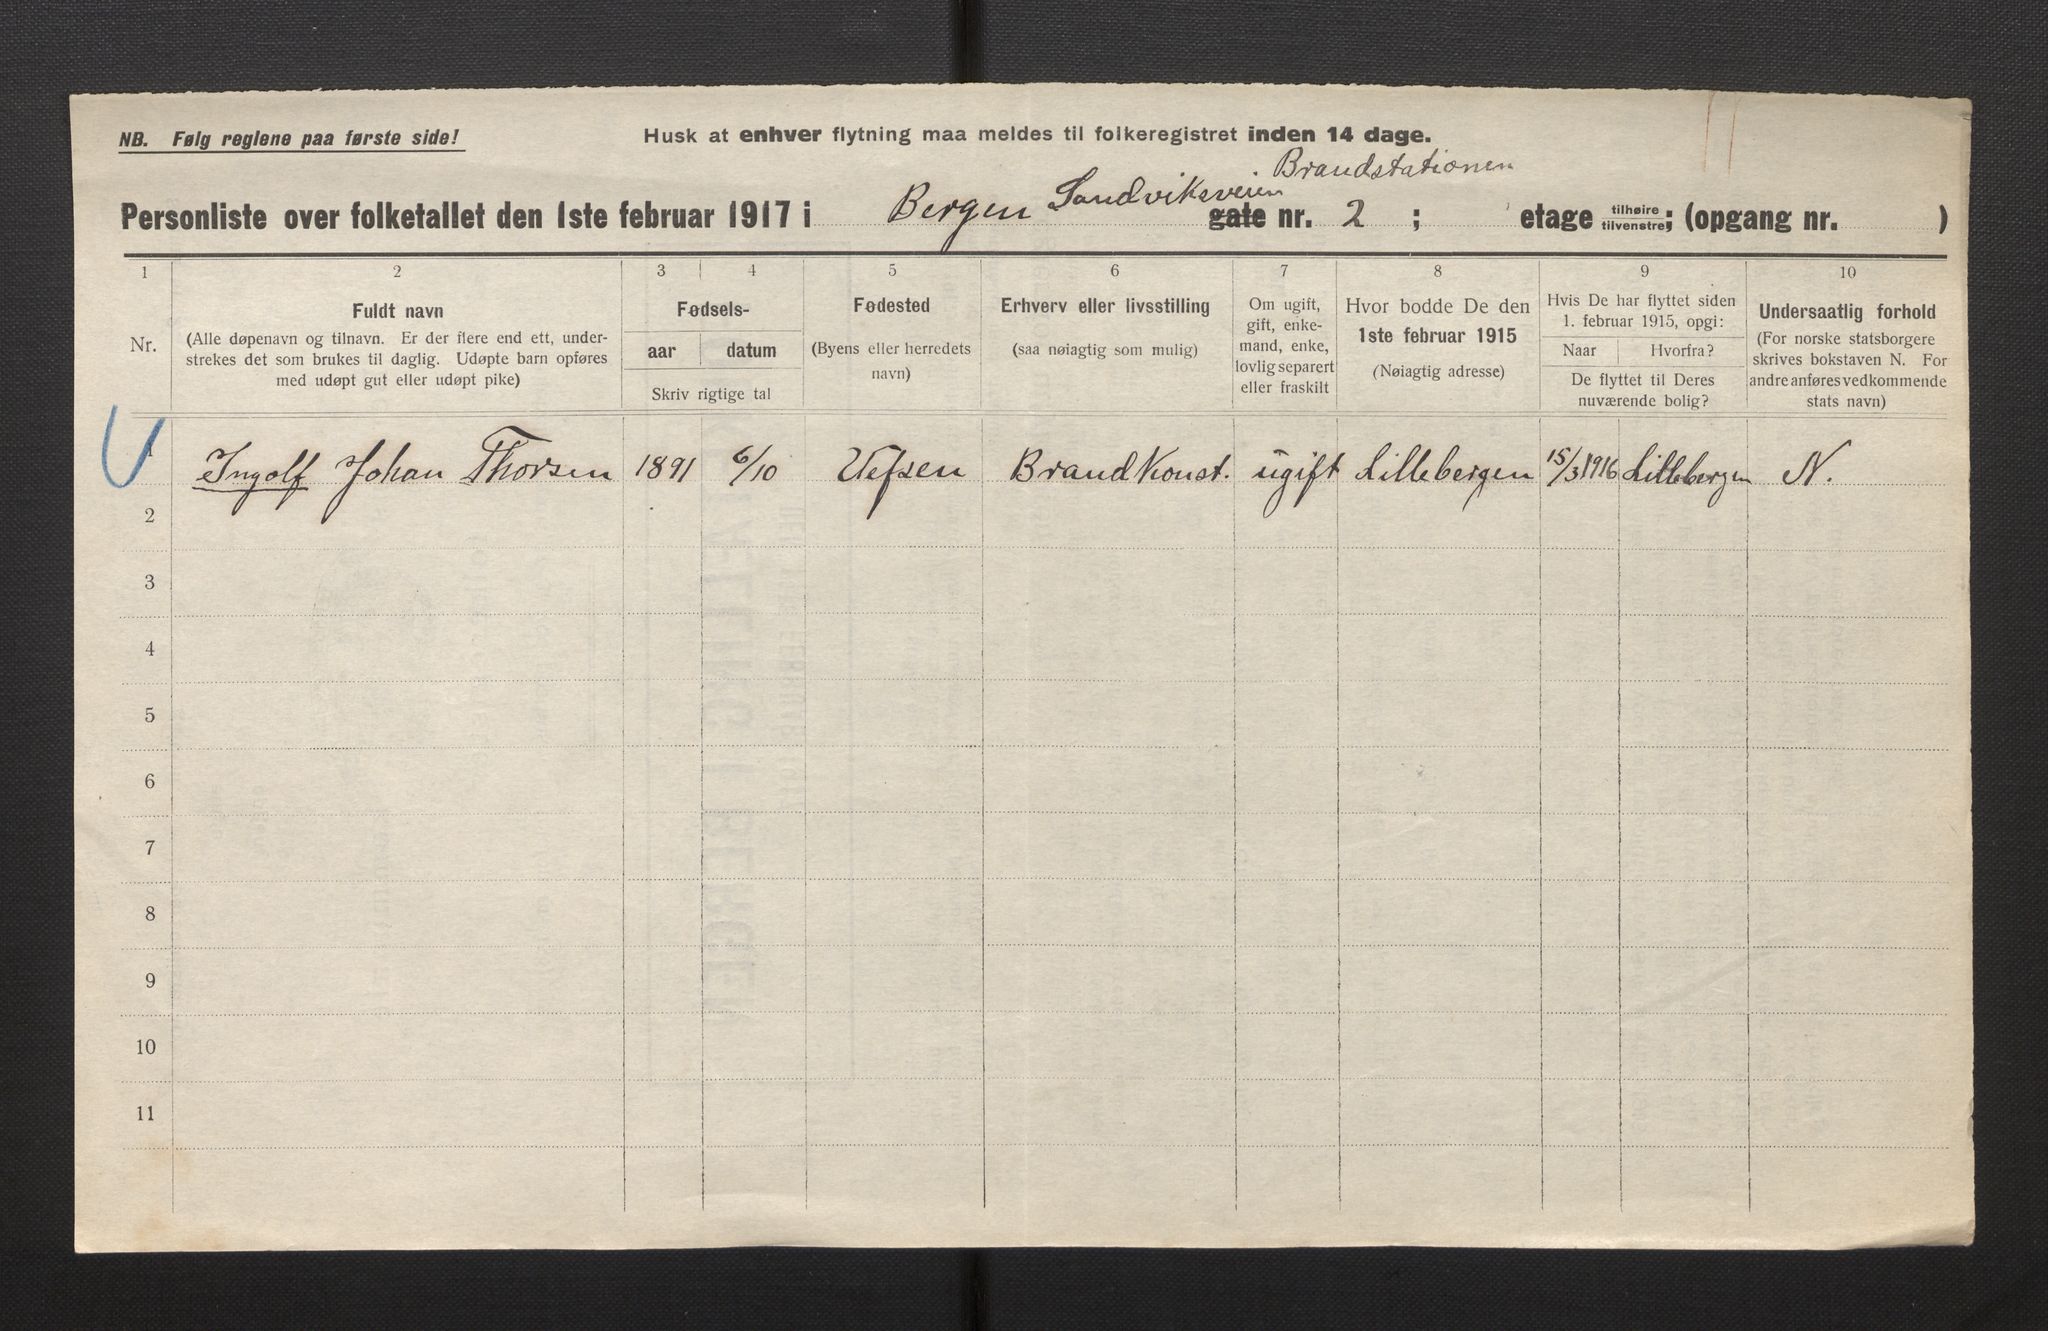 NB. Følg reglene paa første side!
Husk at enhver flytning maa meldes til folkeregistret inden 14 dage.
Brandstationen
Personliste over folketallet den 1ste februar 1917 i Bergen Sandviksveien gate nr. 2 ; etage tilhøire tilvenstre ; (opgang nr. )
1 2 3 4 5 6 7 8 9 10
Nr.
Fuldt navn
(Alle døpenavn og tilnavn. Er der flere end ett, under-
strekes det som brukes til daglig. Udøpte barn opføres
med udøpt gut eller udøpt pike)
Fødsels-
aar datum
Skriv rigtige tal
Fødested
(Byens eller herredets
navn)
Erhverv eller livsstilling
(saa nøiagtig som mulig)
Om ugift,
gift, enke-
mand, enke,
lovlig separert
eller fraskilt
Hvor bodde De den
1ste februar 1915
(Nøiagtig adresse)
Hvis De har flyttet siden
1. februar 1915, opgi:
Naar Hvorfra?
De flyttet til Deres
nuværende bolig?
Undersaatlig forhold
(For norske statsborgere
skrives bokstaven N. For
andre anføres vedkommende
stats navn)
1 Ingolf Johan Thorsen 1891 6/10 Vefsen Brand Konst. ugift Lillebergen 15/3 1916 Lillebergen N.
2
3
4
5
6
7
8
9
10
11